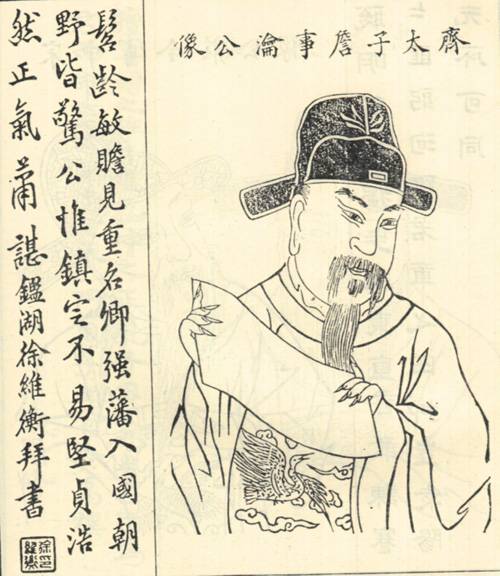 齊太子詹事瀹公像
髫齡敏贍見重名卿强藩入國朝
野皆驚公惟鎮定不易堅貞浩
然正氣諶鑑湖徐維衡拜書